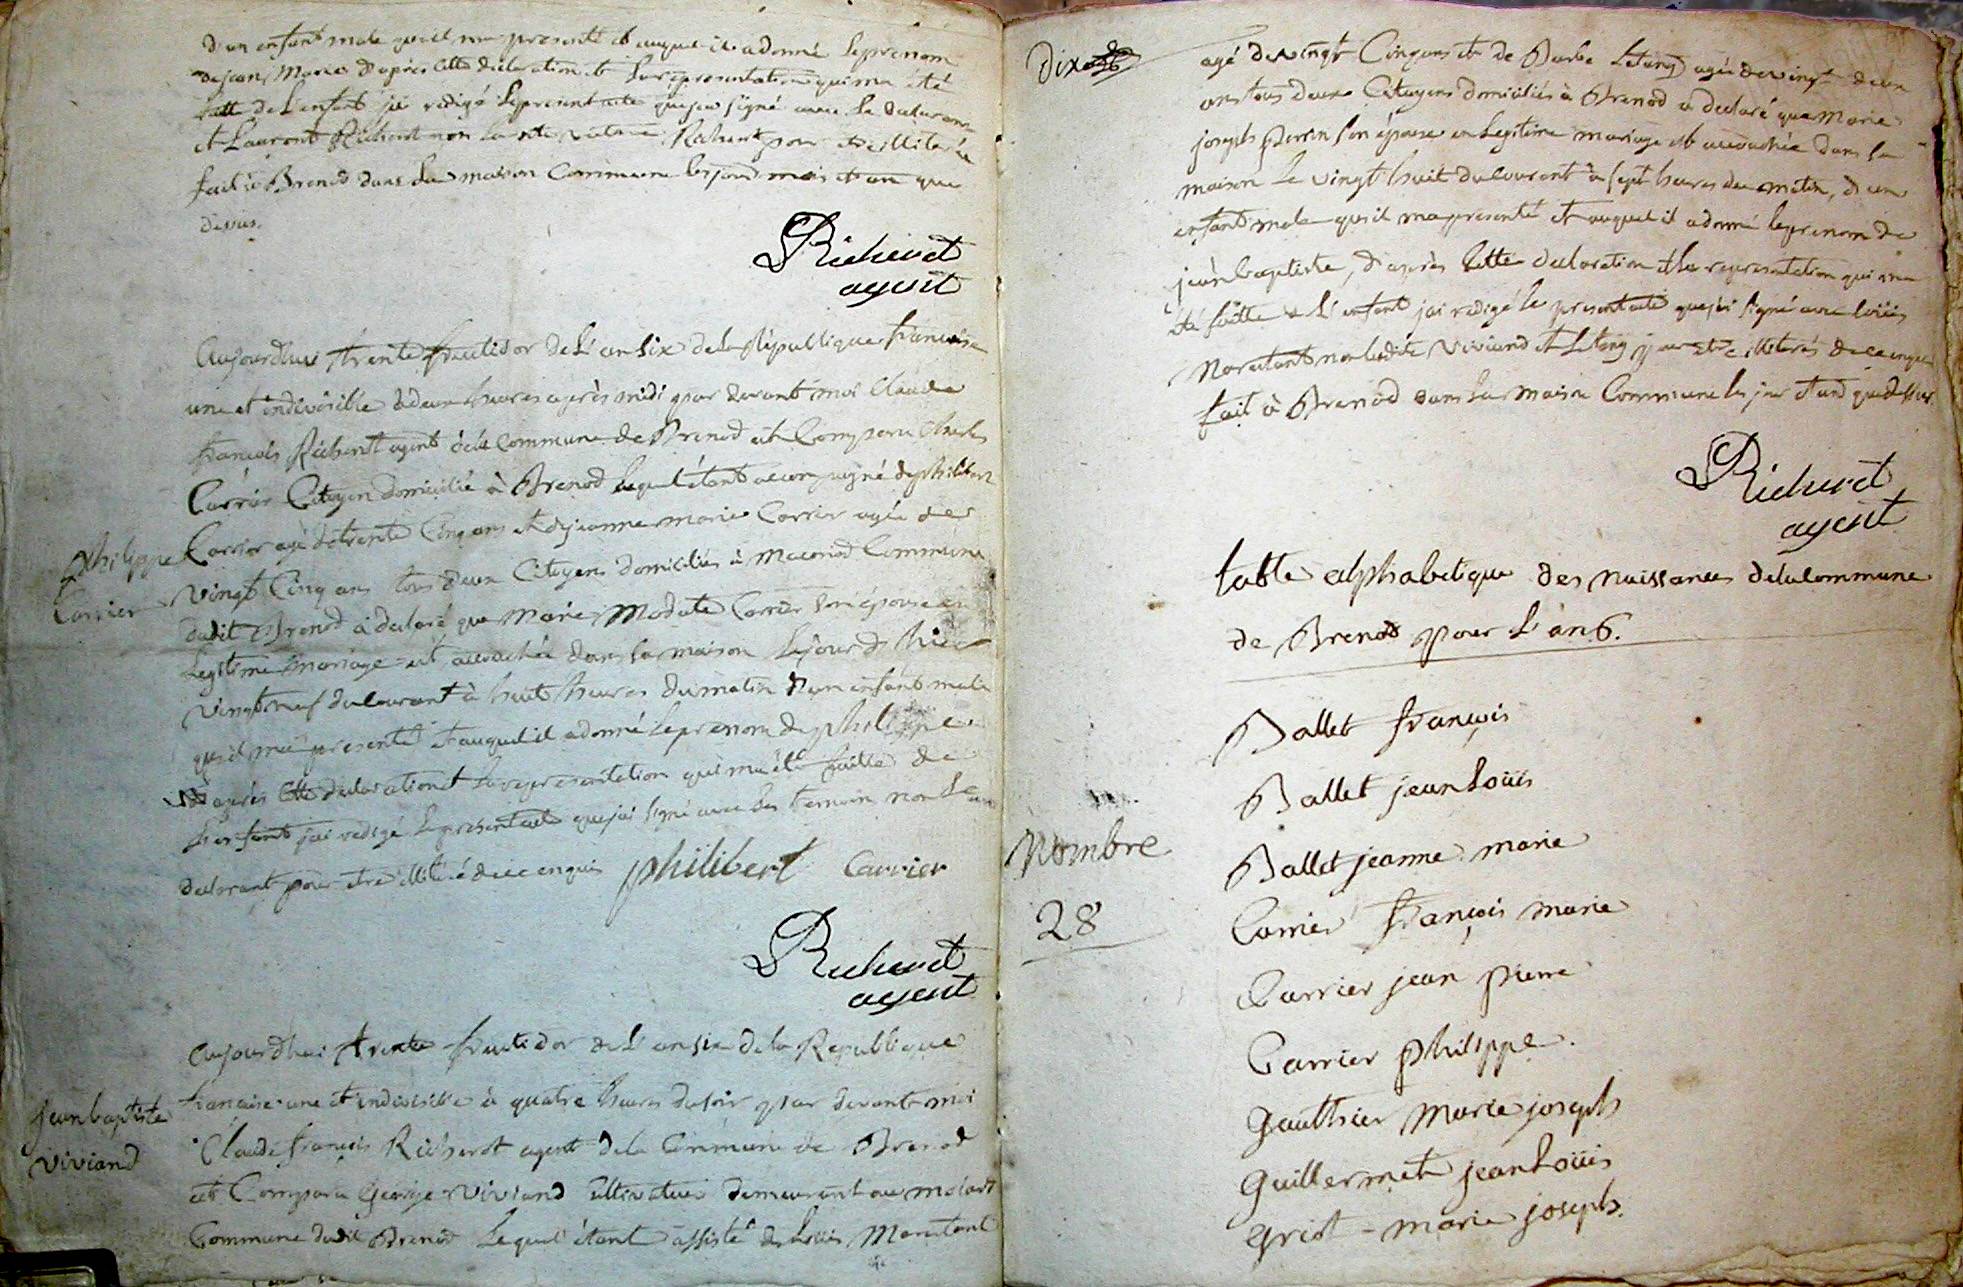 d'un enfant male qu'il m'a presenté et auquel il a donné le prenom
de jean Marie d'après cette declaration et la representation qui m'a été
faitte de l'enfant j'ai redigé le present acte que j'ai signé avec le declarant
et Laurent Richerot non la ditte Richerot pour être illiterée
fait à Brenod dans la maison Commune les jour mois et an que
dessus.
Richerot
agent
Aujourdhui trente fructidor de L'an Six de la République francaise
une et indivisible à deux heures après midi par devant moi Claude
françois Richerot agent de la Commune de Brenod est Comparu Charles
Carrier Citoyen domicilié à Brenod lequel étant accompagné de philibert
Carrier agé de trente Cinq ans et de jeanne marie Carrier agée de
vingt Cinq ans tous deux Citoyens domiciliés à Maconod Commune
dudit Brenod a declaré que Marie Modeste Carrier son épouse en
Legitime mariage est accouchée dans sa maison Le jour d'hier
vingt neuf du courant à huit heures du matin d'un enfant male
qu'il m'a presenté et auquel il a donné le prenom de philippe
d'après cette declaration et la representation qui m'a été faitte de
l'enfant j'ai redigé le present acte que j'ai signé avec les temoin non le
declarant pour etre illiteré de ce enquis philibert Carrier
philippe
Carrier
Richerot
agent
aujourdhui trente fructidor de L'an six de la Republique
francaise une et indivisible à quatre heures du soir par devant moi
Claude françois Richerot agent de la Commune de Brenod
est Comparu George Viviand Cultivateur demeurant au
Commune dudit Brenod Lequel étant assisté de Loüis Maritant
jean baptiste
viviand
Dix
agé de vingt Cinq ans et de Barbe Letang agée de vingt deux
ans tous deux Citoyens domiciliés à Brenod a declaré que Marie
joseph Perrin son épouse en Legitime mariage est accouchée dans sa
maison Le vingt huit du courant à sept heures du matin, d'un
enfant male qu'il m'a presenté et auquel il a donné le prenom de
jean baptiste, d'après cette declaration et la representation qui m'a
été faitte de L'enfant j'ai redigé le present acte que j'ai signé avec loüis
Maritant non lesdits Viviand et Letang pour etre illiterés de ce enquis
fait à Brenod dans la maison Commune les jour et an que dessus
Richerot
agent
table alphabetique des naissances de la Commune
de Brenod pour L'an 6.
Nombre
28
Ballet françois
Ballet jean Loüis
Ballet jeanne marie
Carrier françois marie
Carrier jean pierre
Carrier philippe.
Gauthier Marie joseph
Guillermet jean Loüis
Griot - marie joseph.